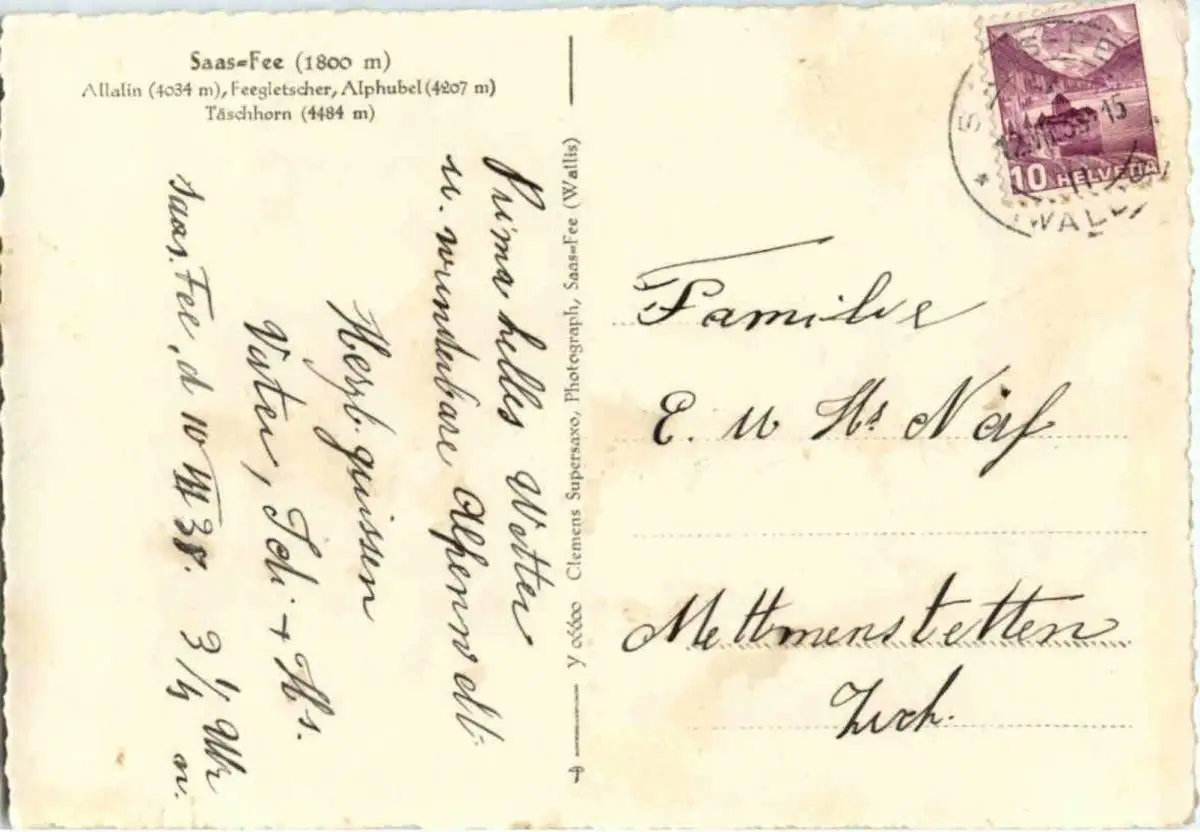 Saas=Fee (1800 m)
Allalin (4034 m), Feegletscher, Alphubel (4207 m)
Täschhorn (4484 m)
Prima helles Wetter
u. wunderbare Alpenwelt.
Herzl. grüssen
Vater, Ich + Hs.
Saas. Fee, d VIII 38. 3 1/4 Uhr
n.
Y 06600 Clemens Supersaxo, Photograph, Saas=Fee (Wallis)
10 HELVETIA
Familie
E. u Hs Näf
Mettmenstetten
Zürch.